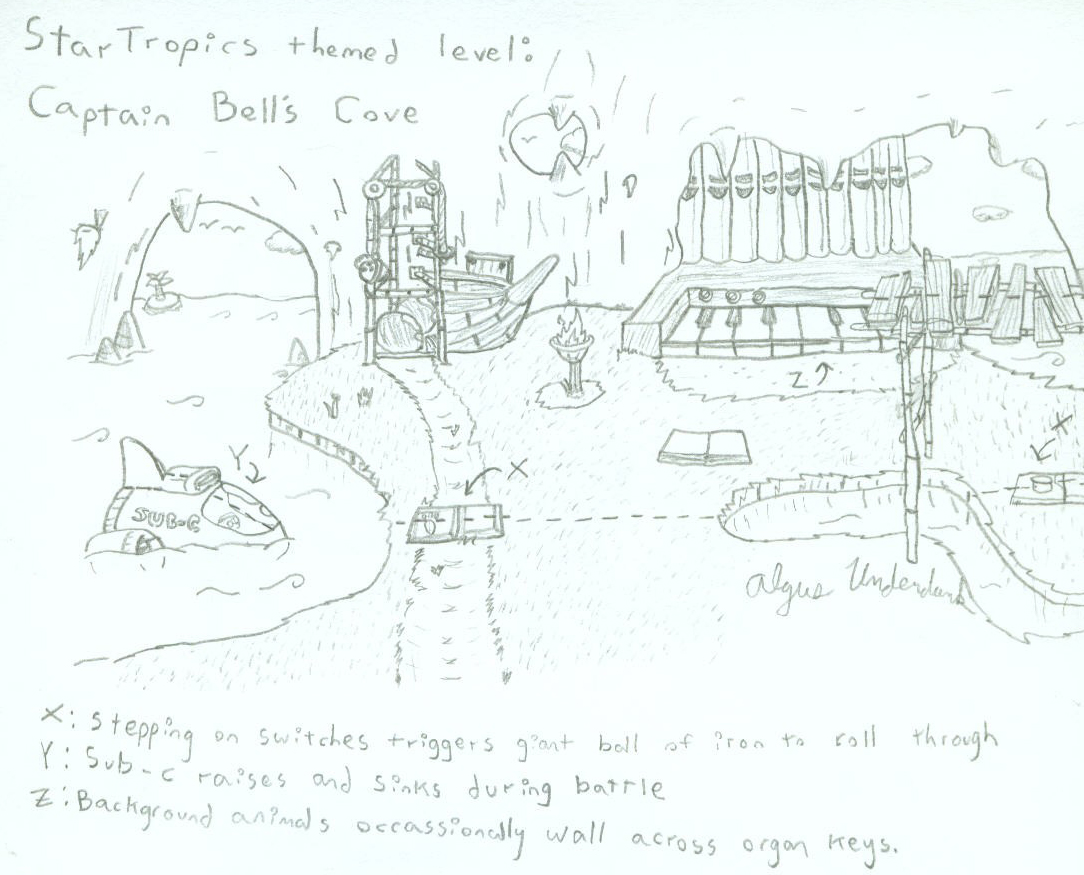 StarTropics themed level:
Captain Bell's Cove
Y
SUB-C
X
Z
X
X: Stepping on switches triggers giant ball of iron to roll through
Y: Sub-c raises and sinks during battle
Z: Background animals occassionally wall across organ keys.